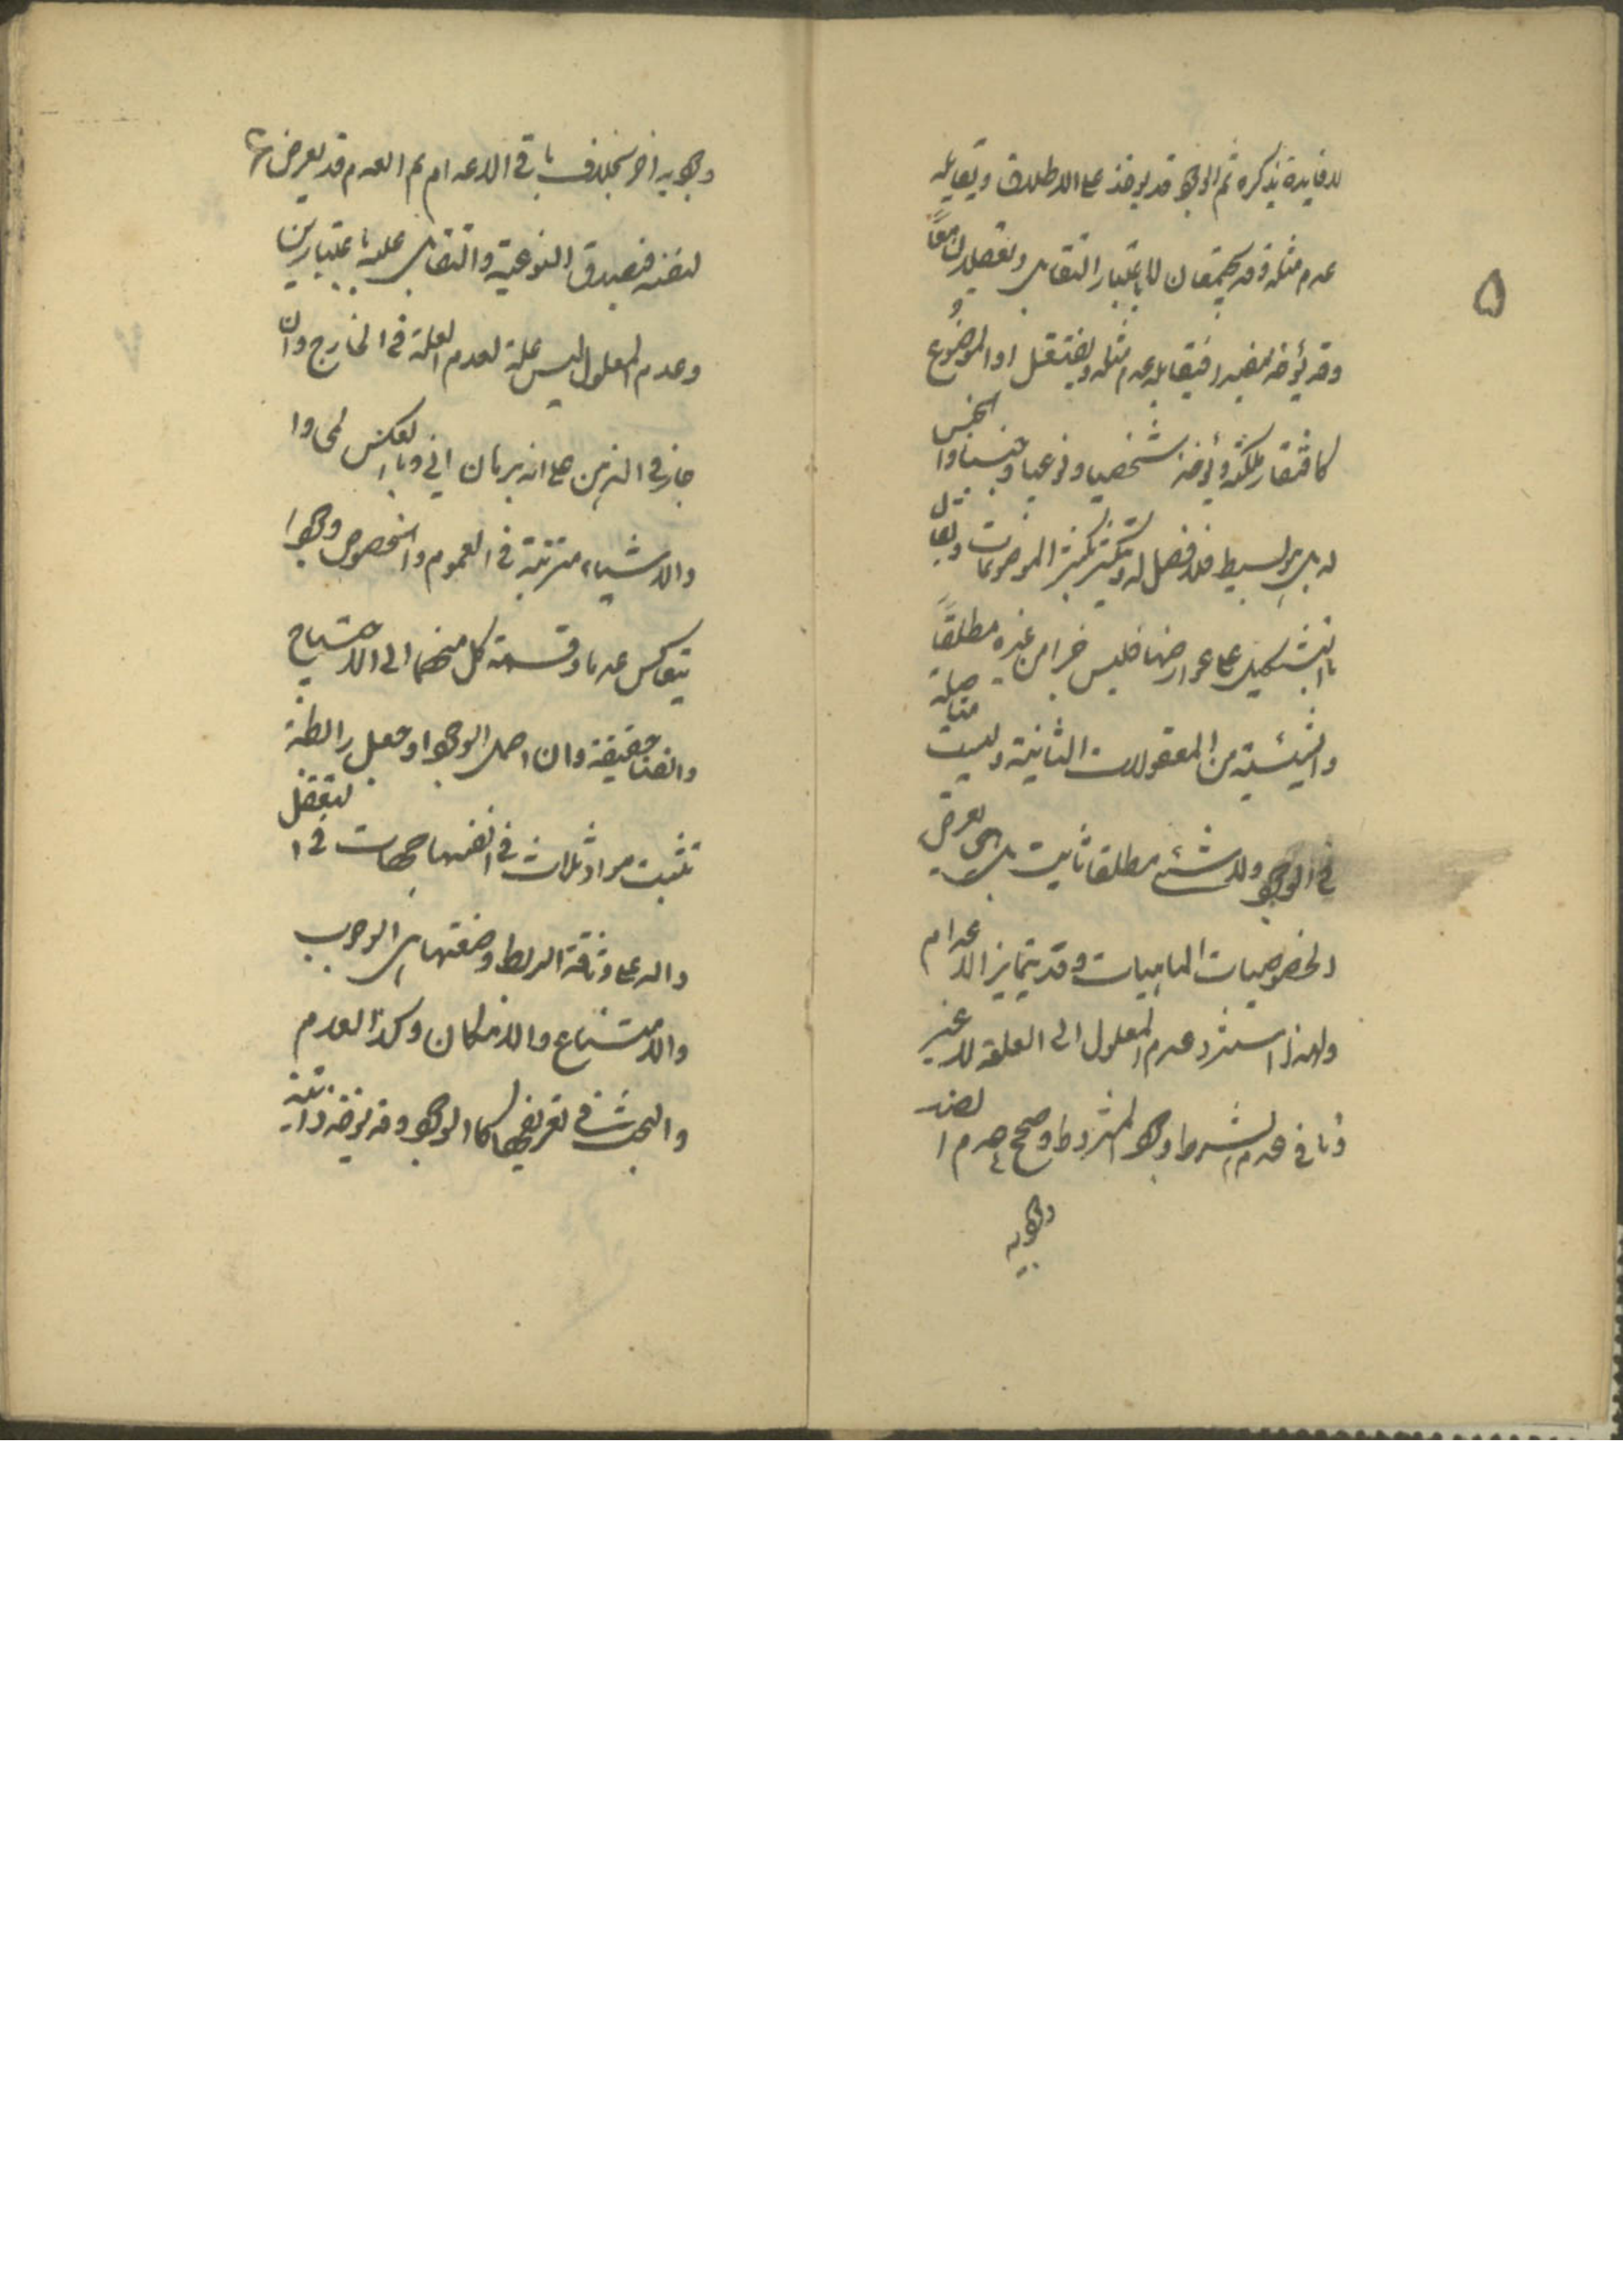 لا فايدة بذكره ثم الوجود قد يوخذ على الاطلاق ويقابله
عدم مثله وقد يجتمعان لا باعتبار التقابل ويعقلان معا
وقد يؤخذ مقيدا فيقابله عدم مثله ويفتقر الى الموضوع
كافتقار ملكته ويؤخذ شخصيا ونوعيا وجنسيا والجنس
له بل بسيط فلا فصل له ويتكثر بتكثر الموضوعات ويقال
بالتشكيك على عوارضها فليس جزءا من غيره مطلقاً
والشيئية من المعقولات الثانية وليست متاصلة
فى الوجود ولا شئ مطلقا ثابت بل هى تعرض
لخصوصيات الماهيات وقد يتمايز الاعدام
ولهذا استند عدم المعلول الى العلة لا غير
ونافى عدم الشرط وجود المشروط وصحح عدم الضد
وجود
وجود الاخر بخلاف باقى الاعدام ثم العدم قد يعرض
لنفسه فيصدق النوعية والتقابل عليه باعتبارين
وعدم المعلول ليس علة لعدم العلة فى الخارج وان
جاز فى الذهن على انه برهان انى وبالعكس لمى و
الاشياء مترتبة فى العموم والخصوص وجودا
يتعاكس عدما وقسمة كل منهما الى الاحتياج
والغنا حقيقية وان احمل الوجود او جعل رابطة
تثبت مواد ثلاث فى انفسها جهات فى التعقل
دالة على وثاقة الربط وضعفها هى الوجوب
والامتناع والامكان وكذا العدم
والبحث فى تعريفها كالوجود وقد يؤخذ ذاتية